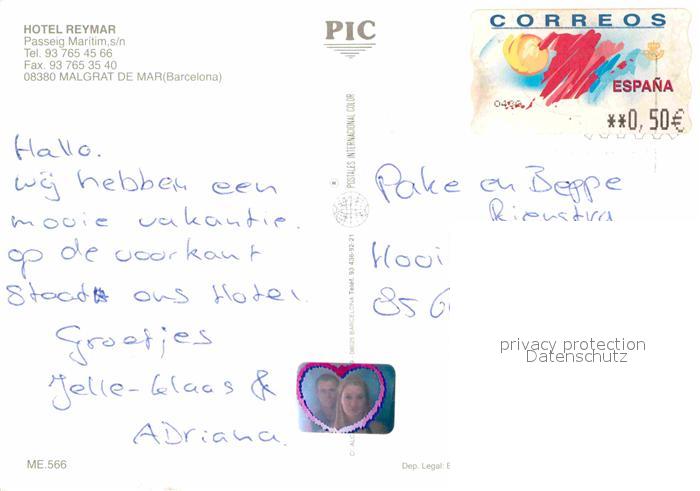 HOTEL REYMAR
Passeig Marítim,s/n
Tel. 93 765 45 66
Fax. 93 765 35 40
08380 MALGRAT DE MAR(Barcelona)
PIC
CORREOS
ESPAÑA
**0,50€
Hallo.
wij hebben een
mooie vakantie.
op de voorkant
staat ons Hotel.
Groetjes
Jelle-Klaas &
ADriana.
POSTALES INTERNACIONAL COLOR
Pake en Beppe
Rienstra
Hooi
85
privacy protection
Datenschutz
ME.566
Dep. Legal: